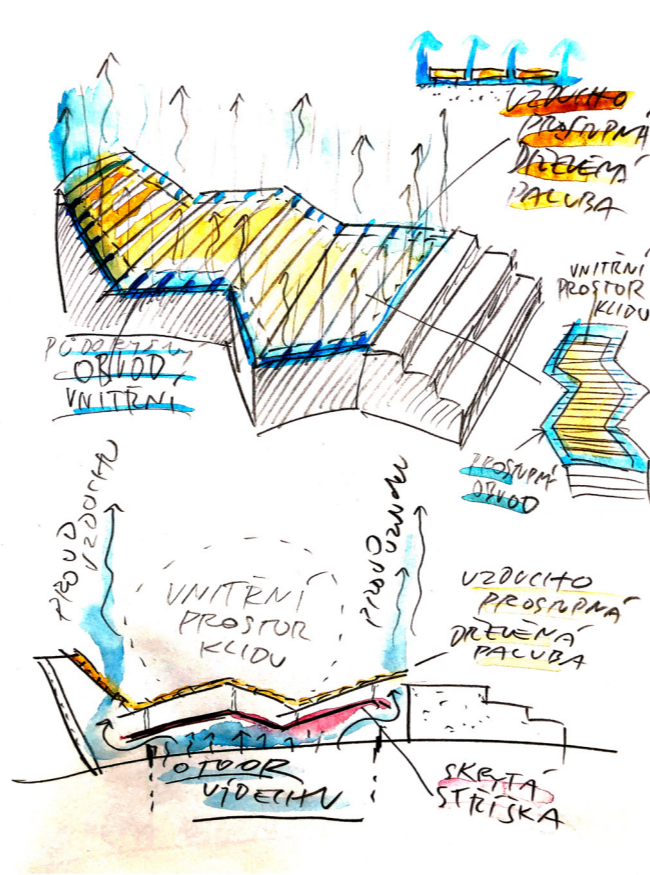 VZDUCHO
PROSTUPNÁ
DŘEVĚNÁ
PALUBA
VNITŘNÍ
PROSTOR
KLIDU
OBVOD
VNITŘNÍ
PROSTUPNÝ
OBVOD
PROUD
VZDUCHU
PROUD VZDUCHU
VNITŘNÍ
PROSTOR
KLIDU
VZDUCHO
PROSTUPNÁ
DŘEVĚNÁ
PALUBA
OTVOR
VÝDECHU
SKRYTÁ
STŘÍŠKA